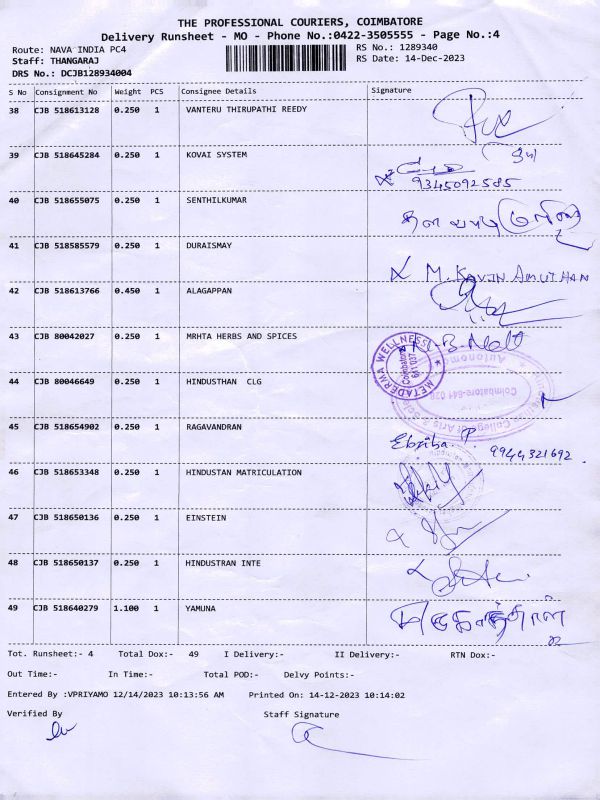 THE PROFESSIONAL COURIERS, COIMBATORE
Delivery Runsheet - MO - Phone No.:0422-3505555 - Page No.:4
Route: NAVA INDIA PC4 RS No.: 1289340
Staff: THANGARAJ RS Date: 14-Dec-2023
DRS No.: DCJB128934004
S No Consignment No Weight PCS Consignee Details Signature
38 CJB 518613128 0.250 1 VANTERU THIRUPATHI REEDY
39 CJB 518645284 0.250 1 KOVAI SYSTEM
9345092585
40 CJB 518655075 0.250 1 SENTHILKUMAR
41 CJB 518585579 0.250 1 DURAISMAY
M. KAVIN AMUTHAN
42 CJB 518613766 0.450 1 ALAGAPPAN
43 CJB 80042027 0.250 1 MRHTA HERBS AND SPICES
METADERMA WELLNESS
Coimbatore
641 037
44 CJB 80046649 0.250 1 HINDUSTHAN CLG
Autonomous
Coimbatore-641 028
College of Arts &
45 CJB 518654902 0.250 1 RAGAVANDRAN
9944321692
46 CJB 518653348 0.250 1 HINDUSTAN MATRICULATION
47 CJB 518650136 0.250 1 EINSTEIN
48 CJB 518650137 0.250 1 HINDUSTRAN INTE
49 CJB 518640279 1.100 1 YAMUNA
Tot. Runsheet:- 4 Total Dox:- 49 I Delivery:- II Delivery:- RTN Dox:-
Out Time:- In Time:- Total POD:- Delvy Points:-
Entered By :VPRIYAMO 12/14/2023 10:13:56 AM Printed On: 14-12-2023 10:14:02
Verified By Staff Signature